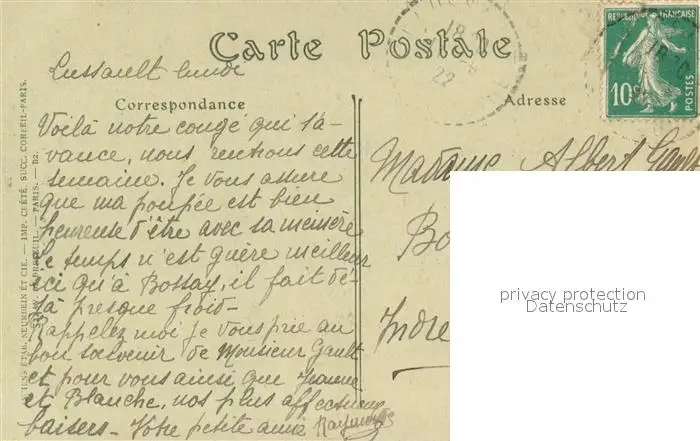 Carte Postale
Lussault lundi
Correspondance
Adresse
RÉPUBLIQUE FRANÇAISE
10c
POSTES
18
22
Voilà notre congé qui s'a-
vance, nous rentrons cette
semaine. Je vous assure
que ma poupée est bien
heureuse d'être avec sa mémère
Le temps n'est guère meilleur
ici qu'à Bossay, il fait dé-
jà presque froid-
Rappelez moi je vous prie au
bon souvenir de Monsieur Gault
et pour vous ainsi que
et Blanche, nos plus affectueux
baisers- Votre petite amie
Madame Albert
Bo
Indre
privacy protection
Datenschutz
ÉTAB. NEURDEIN ET CIE. — IMP. CRÉTÉ, SUCC. CORBEIL-PARIS.
PARIS. — B2.